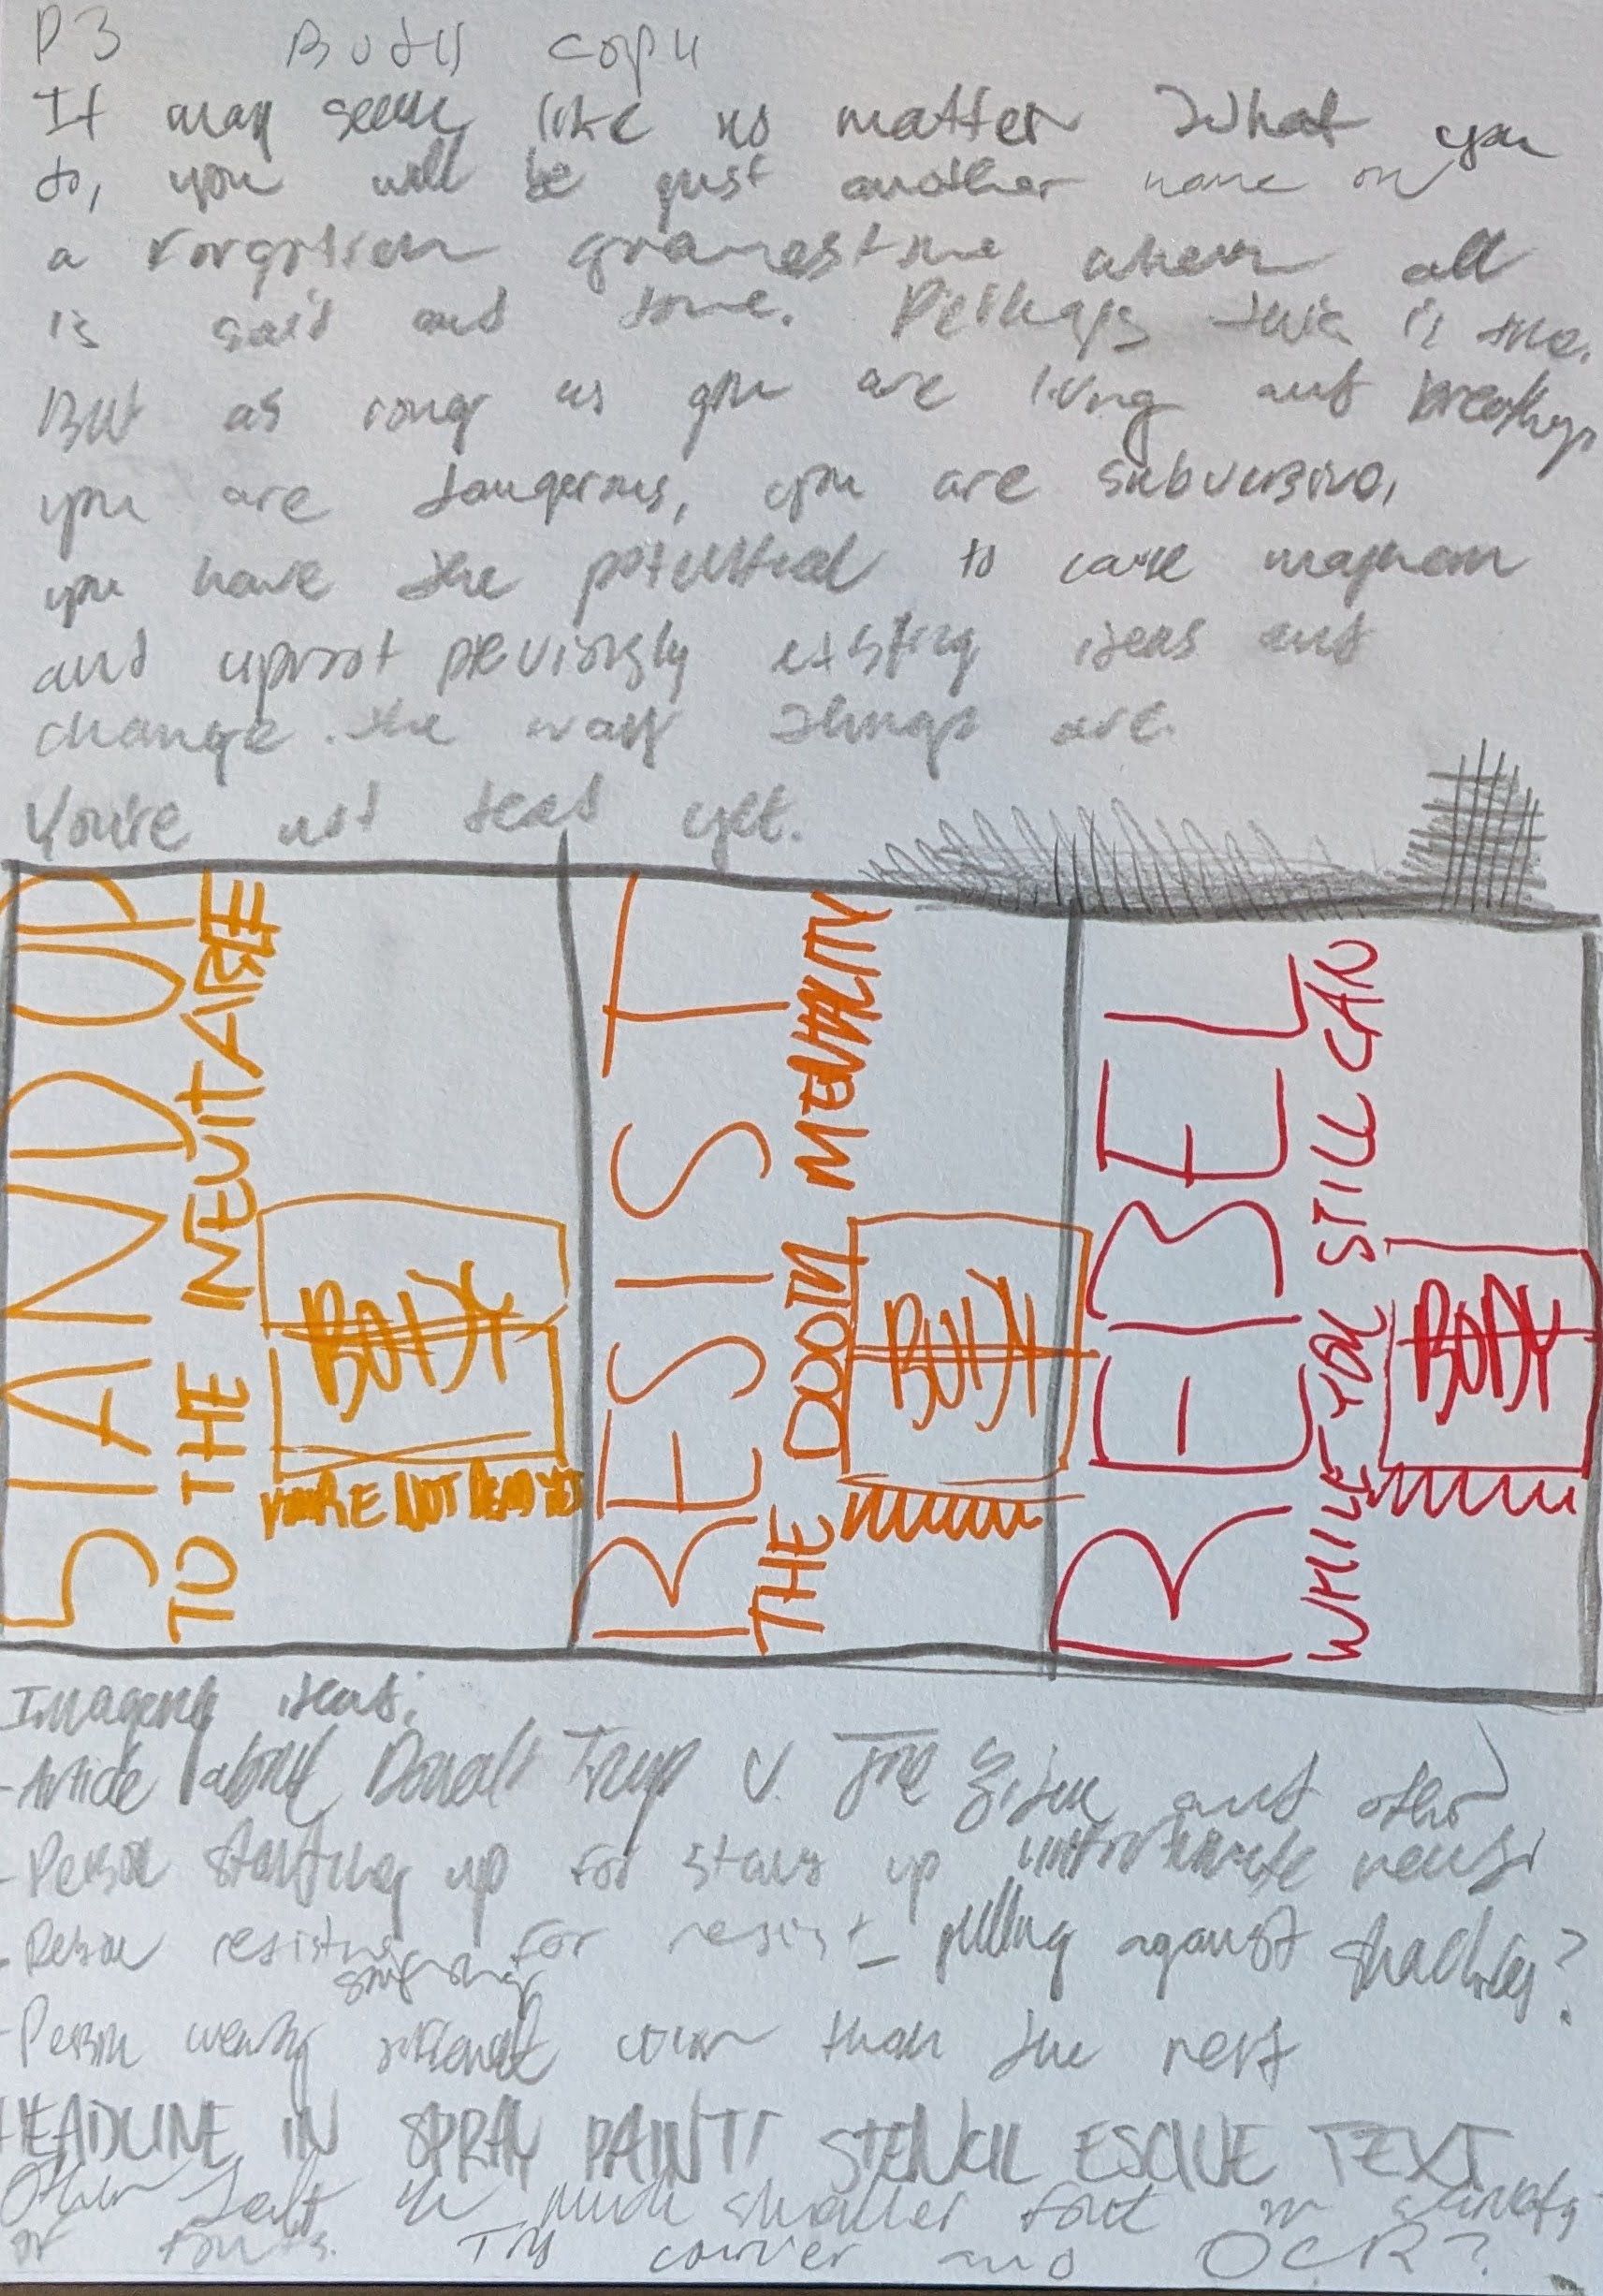 P3 Body copy
It may seem like no matter what you
do, you will be just another name on
a forgotten gravestone when all
is said and done. Perhaps this is true.
But as long as you are living and breathing
you are dangerous, you are subversive,
you have the potential to cause mayhem
and uproot previously existing ideas and
change the way things are.
You're not dead yet.
STAND UP
TO THE INEVITABLE
BODY
YOU'RE NOT DEAD YET
RESIST
THE DOOM MENTALITY
BODY
REBEL
WHILE YOU STILL CAN
BODY
Imagery ideas:
- Article about Donald Trump v. Joe Biden and other
unfortunate news
- Person standing up for stand up
- Person resisting for resist - pulling against shackles?
- Person wearing different color than the rest
HEADLINE IN SPRAY PAINT STENCIL ESQUE TEXT
Other text in much smaller font or
of fonts. Try courier and OCR?